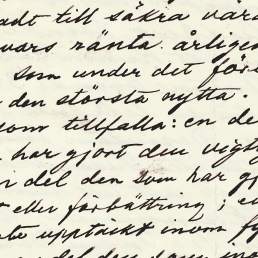 adt till säkra värd
vars ränta årligen
som under det för
den största nytta.
som tillfalla: en de
har gjort den vigti
i del den som har gj
t eller förbättring; e
te upptäckt inom fy
del den som